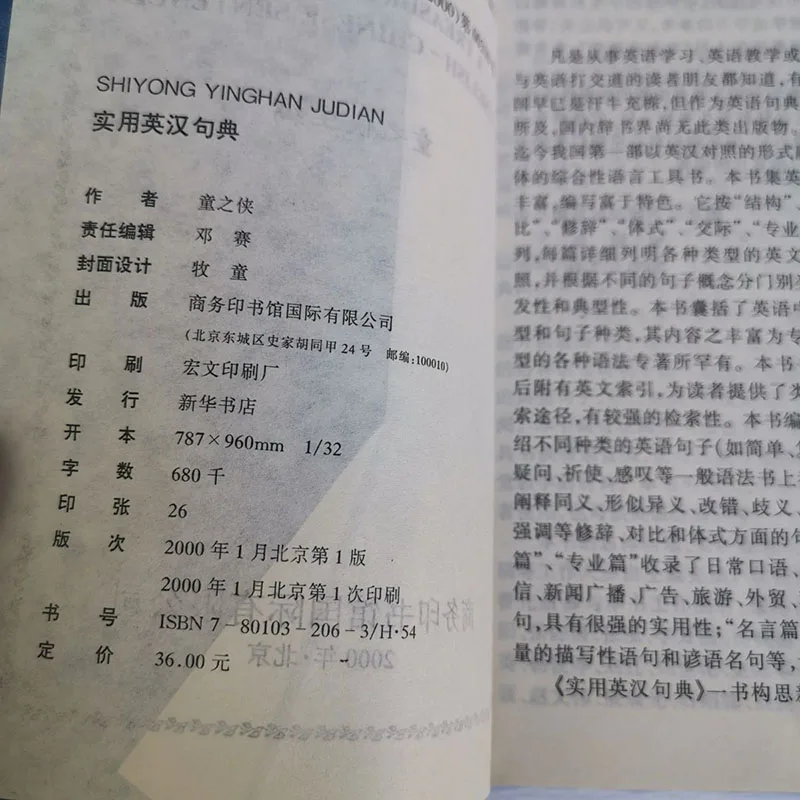 SHIYONG YINGHAN JUDIAN
实用英汉句典
作 者 童之侠
责任编辑 邓 赛
封面设计 牧 童
出 版 商务印书馆国际有限公司
(北京东城区史家胡同甲 24 号 邮编:100010)
印 刷 宏文印刷厂
发 行 新华书店
开 本 787×960mm 1/32
字 数 680 千
印 张 26
版 次 2000 年 1 月北京第 1 版
2000 年 1 月北京第 1 次印刷
书 号 ISBN 7-80103-206-3/H·54
定 价 36.00 元
凡是从事英语学习、英语教学或
与英语打交道的读者朋友都知道,有
国早已是汗牛充栋,但作为英语句典
所及,国内辞书界尚无此类出版物。
迄今我国第一部以英汉对照的形式
体的综合性语言工具书。本书集英
丰富,编写富于特色。它按“结构”、
比”、“修辞”、“体式”、“交际”、“专业
列,每篇详细列明各种类型的英文
照,并根据不同的句子概念分门别
发性和典型性。本书囊括了英语中
型和句子种类,其内容之丰富为专
型的各种语法专著所罕有。本书
后附有英文索引,为读者提供了类
索途径,有较强的检索性。本书编
绍不同种类的英语句子(如简单、
疑问、祈使、感叹等一般语法书上
阐释同义、形似异义、改错、歧义、
强调等修辞、对比和体式方面的句
篇”、“专业篇”收录了日常口语、
信、新闻广播、广告、旅游、外贸、
句,具有很强的实用性;“名言篇
量的描写性语句和谚语名句等,
《实用英汉句典》一书构思